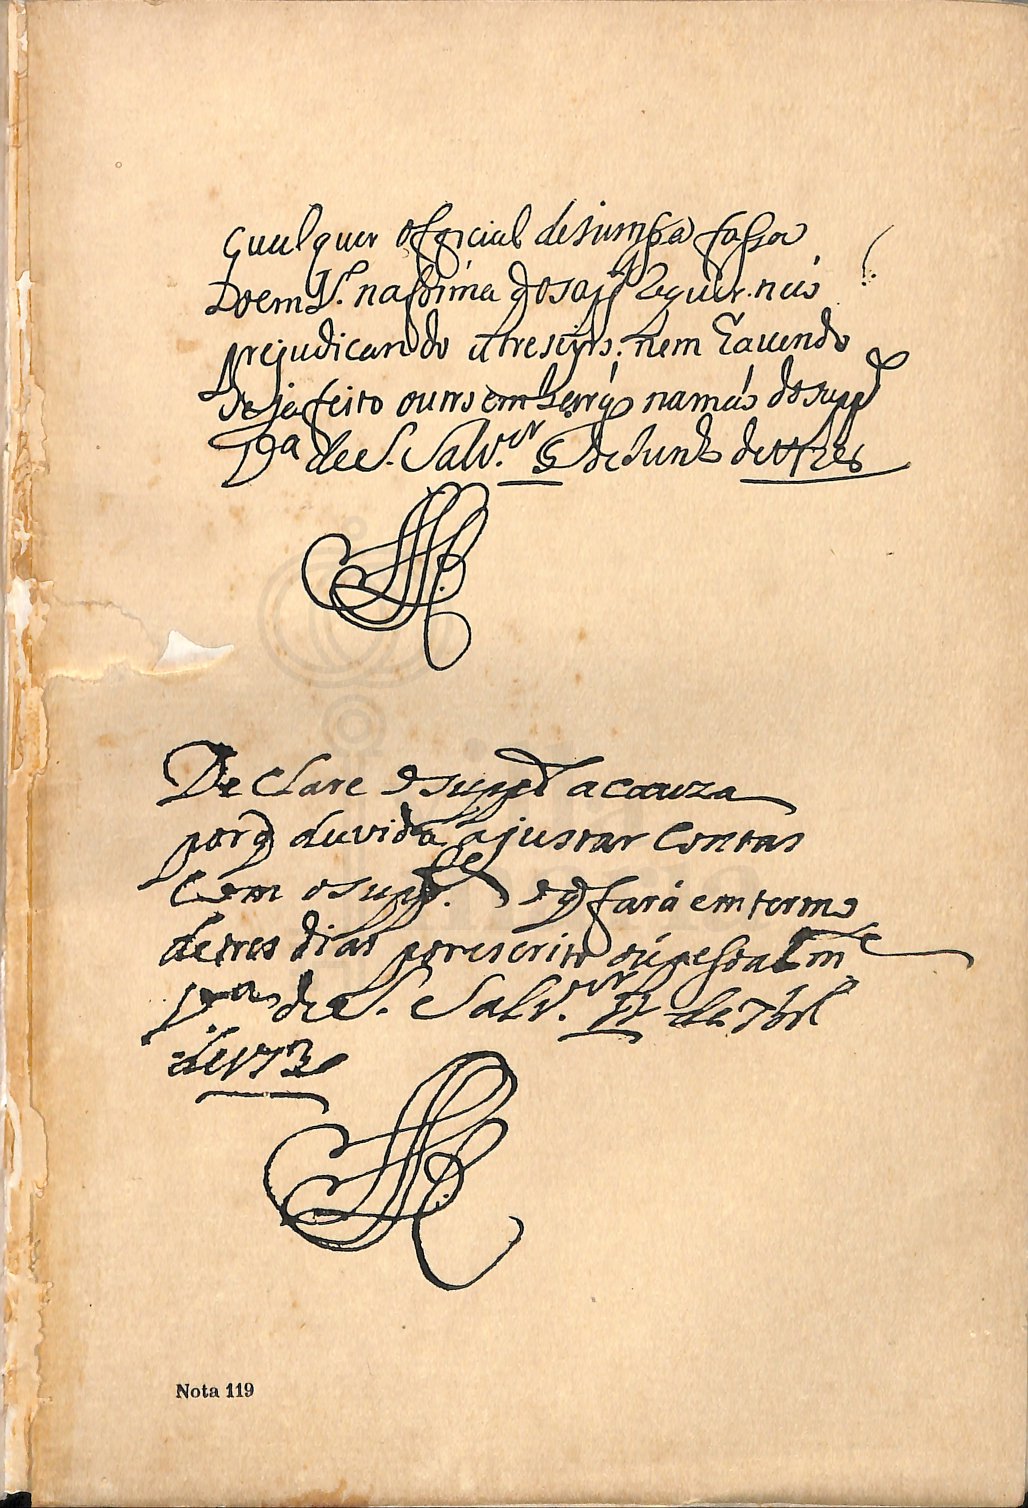 qualquer official de justiça fassa
na forma q o sup.te Requer. não
prejudicando a treseyro. nem havendo
de ja feito outros em na mão do sup.te
V.a de S. Salv.or 5 de Junho de
De Clare o sup.te a cauza
porq duvida ajustar Contas
Com o sup.te o q fará em termo
de tres dias por escrito ou pesoalm.te
V.a de S. Salv.or 17 de 7br.o
de 173
Nota 119